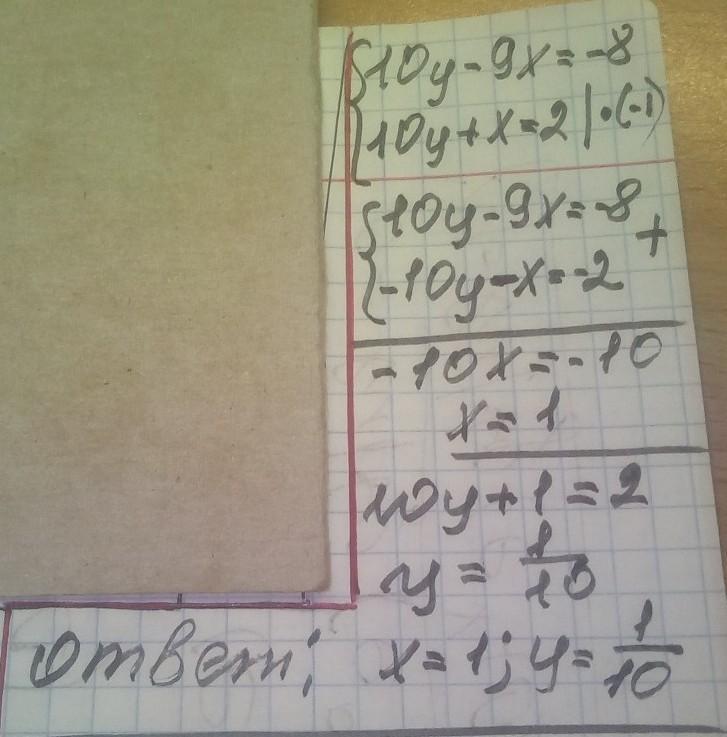 {10y-9x=-8
{10y+x=2|·(-1)
{10y-9x=-8
+
{-10y-x=-2
-10x=-10
x=1
10y+1=2
y=1/10
ответ; x=1; y=1/10